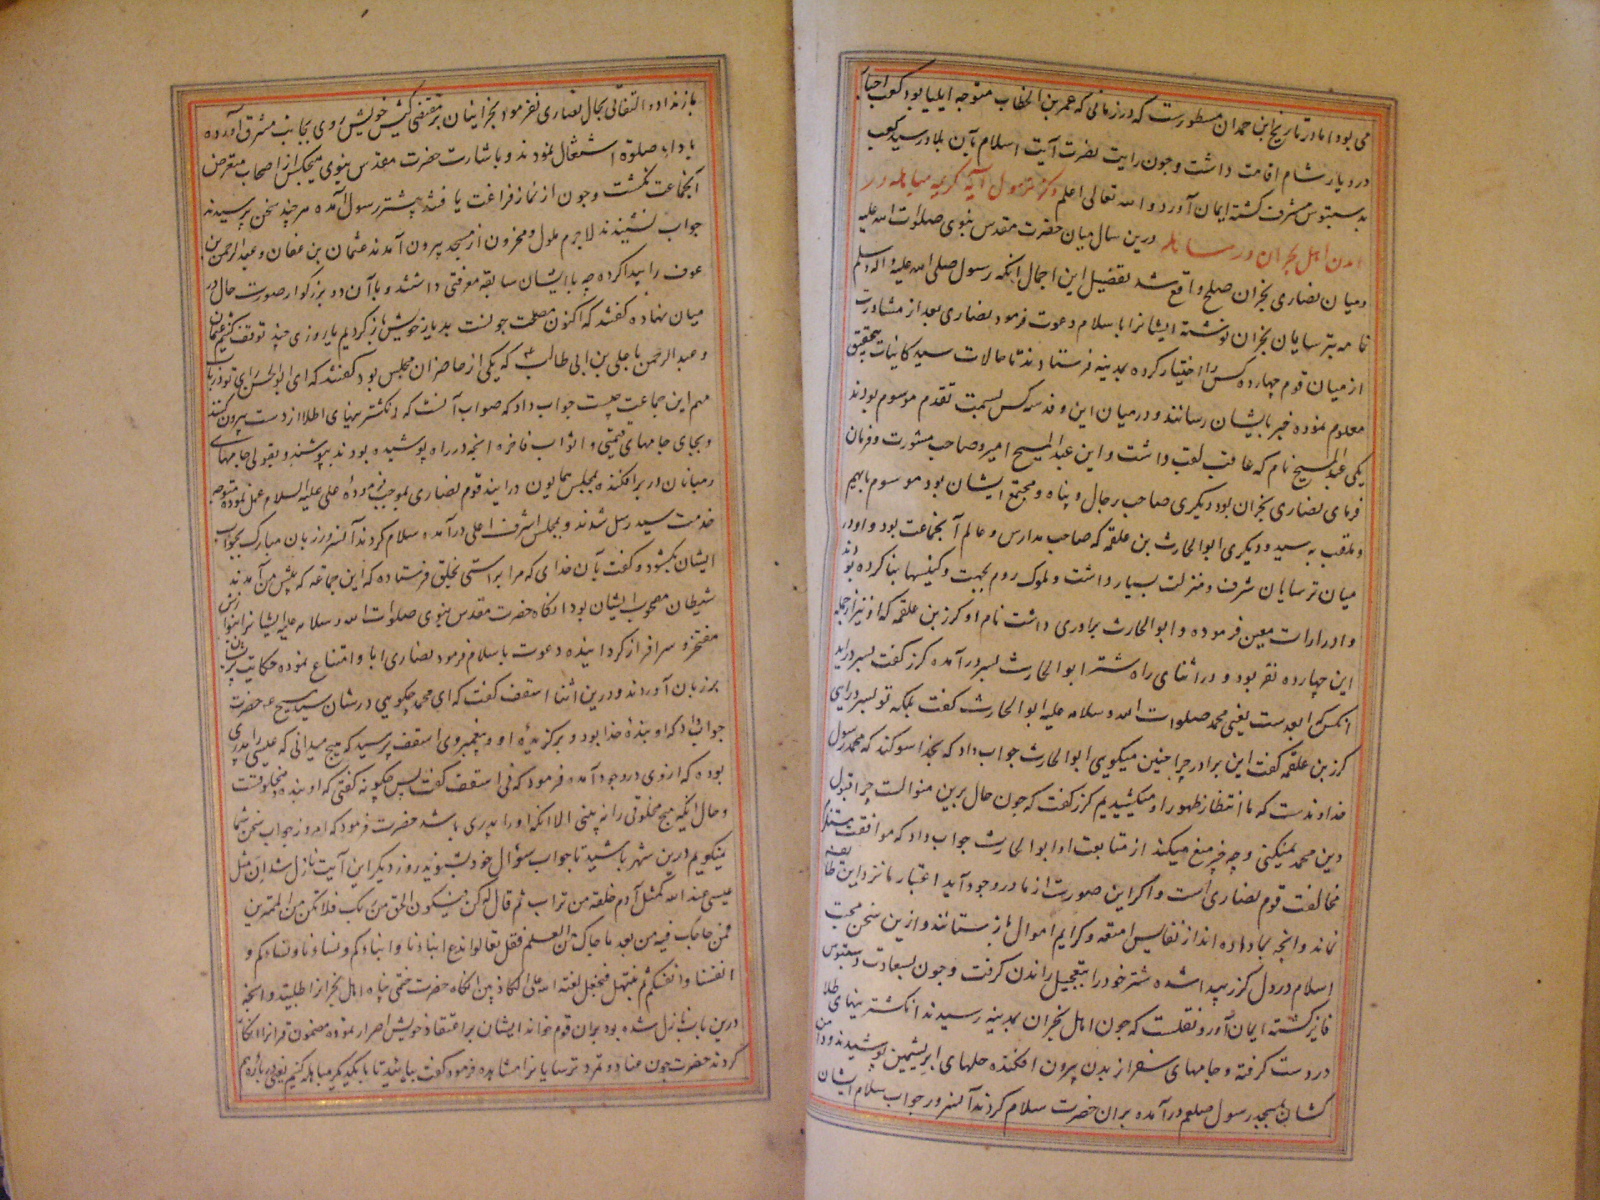 می بود اما در تاریخ ابن حمدان مسطورست که در زمانی که عمر بن الخطاب متوجه ایلیا بود کعب احبار
در دیار شام اقامت داشت و چون رایت نصرت آیت اسلام بآن بلاد رسید کعب
بدستبوس مشرف گشته ایمان آورد و الله تعالی اعلم ذکر نزول آیه کریمه مباهله و
آمدن اهل نجران درین سال میان حضرت مقدس نبوی صلوات الله علیه
و میان نصاری نجران صلح واقع شد تفصیل این اجمال آنکه رسول صلی الله علیه و اله وسلم
نامه بترسایان نجران نوشته ایشانرا باسلام دعوت فرمود نصاری بعد از مشاورت
از میان قوم چهارده کس را اختیار کرده بمدینه فرستادند تا حالات سید کاینات بتحقیق
معلوم نموده خبر بایشان رسانند و درمیان این وفد سه کس بسمت تقدم موسوم بودند
یکی عبدالمسیح نام که عاقب لقب داشت و این عبدالمسیح امیر و صاحب مشورت و فرمان
فرمای نصاری نجران بود دیگری صاحب رجال و پناه و مجتمع ایشان بود موسوم بایهم
و ملقب به سید و دیگری ابوالحارث بن علقمه که صاحب مدارس و عالم آنجماعت بود و او در
میان ترسایان شرف و منزلت بسیار داشت و ملوک روم بجهت وی کنیسها بنا کرده بودند
و ادرارات معین فرموده و ابوالحارث برادری داشت نام او کرز بن علقمه که او نیز از جمله
این چهارده نفر بود و در اثنای راه شتر ابوالحارث بسر درآمده کرز گفت بسر دراید
آنکس که ابعدست یعنی محمد صلوات الله وسلامه علیه ابوالحارث گفت بلکه تو بسر درایی
کرز بن علقمه گفت ای برادر چرا چنین میگویی ابوالحارث جواب داد که بخدا سوکند که محمد رسول
خداوندست که ما انتظار ظهور او میکشیدیم کرز گفت که چون حال برین منوالست چرا قبول
دین محمد نمیکنی و چه چیز منع میکند از متابعت او ابوالحارث جواب داد که موافقت مستلزم
مخالفت قوم نصاری است و اگر این صورت از ما در وجود آید اعتبار ما نزد این طایفه
نماند و آنچه بما داده اند از نفایس امتعه و کرایم اموال باز ستانند و ازین سخن محبت
اسلام در دل کرز پیدا شده شتر خود را بتعجیل راندن گرفت و چون بسعادت دستبوس
فایز گشته ایمان آورد و نقلست که چون اهل نجران بمدینه رسیدند انگشترینهای طلا
در دست گرفته و جامهای سفر از بدن بیرون افکنده حلهای ابریشمین پوشیدند و دامن
کشان بمسجد رسول صلعم درآمده بران حضرت سلام کردند آنسرور جواب سلام ایشان
باز نداد و التفاتی بحال نصاری نفرمود نجرانیان بمقتضی کیش خویش روی بجانب مشرق آورده
بادای صلوة اشتغال نمودند و باشارت حضرت مقدس نبوی هیچکس از اصحاب متعرض
آنجماعت نگشت و چون از نماز فراغت یافتند پیشتر رسول آمده هر چند سخن پرسیدند
جواب نشنیدند لاجرم ملول و محزون از مسجد بیرون آمدند عثمان بن عفان و عبدالرحمن بن
عوف را پیدا کرده چه با ایشان سابقه معرفتی داشتند و با آن دو بزرگوار صورت حال در
میان نهاده گفتند که اکنون مصلحت چونست بدیار خویش باز گردیم یا روزی چند توقف کنیم عثمان
و عبدالرحمن با علی بن ابی طالب که یکی از حاضران مجلس بود گفتند که ای ابوالحسن رای تو در باب
مهم این جماعت چیست جواب داد که صواب آنست که انگشترینهای طلا از دست بیرون کنند
و بجای جامهای قیمتی و اثواب فاخره آنچه در راه پوشیده بودند بپوشند و بقولی جامهای
رهبانان در بر افکنده بمجلس همایون درایند قوم نصاری بموجب فرموده علی علیه السلام عمل نموده متوجه
خدمت سید رسل شدند و بمجلس اشرف اعلی درآمده سلام کردند آنسرور زبان مبارک بجواب
ایشان بگشود و گفت بآن خدای که مرا براستی بخلق فرستاده که این جماعه که پیش من آمدند
شیطان مصحوب ایشان بود آنگاه حضرت مقدس نبوی صلوات الله وسلامه علیه ایشانرا
مفتخر و سرافراز گردانیده دعوت باسلام فرمود نصاری ابا و امتناع نموده حکایت پریشان
بر زبان آوردند و درین اثنا اسقف گفت که ای محمد چگویی در شان سید مسیح حضرت
جواب داد که او بنده خدا بود و برگزیده او و پیغمبر وی اسقف پرسید که هیچ میدانی که عیسی را پدری
بوده که از وی در وجود آمده فرمود که نی اسقف گفت پس چگونه گفتی که او بنده مخلوقست
و حال آنکه هیچ مخلوقی را نه بینی الا آنکه او را پدری باشد حضرت فرمود که امروز جواب سخن شما
نمیگویم درین شهر باشید تا جواب سؤال خود بشنوید روز دیگر این آیت نازل شد ان مثل
عیسی عند الله کمثل آدم خلقه من تراب ثم قال له کن فیکون الحق من ربک فلا تکن من الممترین
فمن حاجک فیه من بعد ما جاک من العلم فقل تعالوا ندع ابناءنا و ابناءکم و نساءنا و نساءکم و
انفسنا و انفسکم ثم نبتهل فنجعل لعنة الله علی الکاذبین آنگاه حضرت ختمی پناه اهل نجرانرا طلبید و آنچه
درین باب نازل شده بود بران قوم خواند ایشان بر اعتقاد خویش اصرار نموده مضمون قرانرا انکار
کردند حضرت چون عناد و تمرد ترسایانرا مشاهده فرمود گفت بیائید تا با یکدیگر مباهله کنیم یعنی